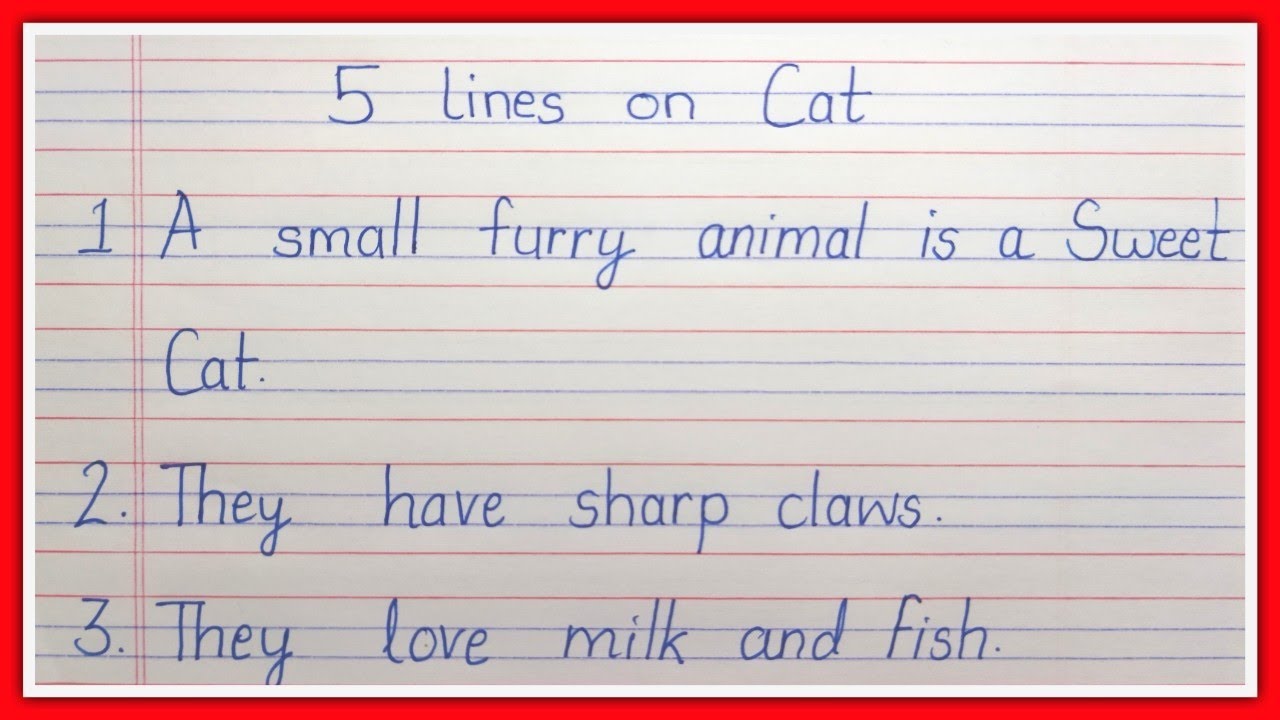 5 lines on Cat
1 A small furry animal is a Sweet
Cat.
2. They have sharp claws.
3. They love milk and fish.